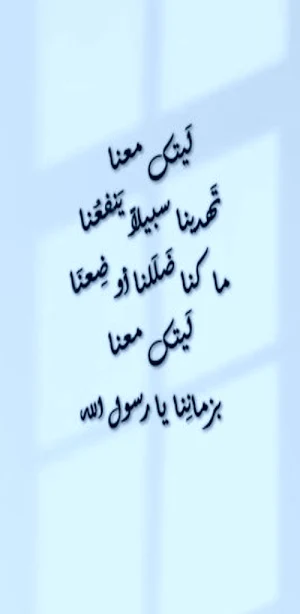 لَيتك معنا
تَهدينا سبيلاً يَنفعُنا
ما كنا ضَلَلنا أو ضِعنَا
لَيتك معنا
بزمانِنا يا رسول الله